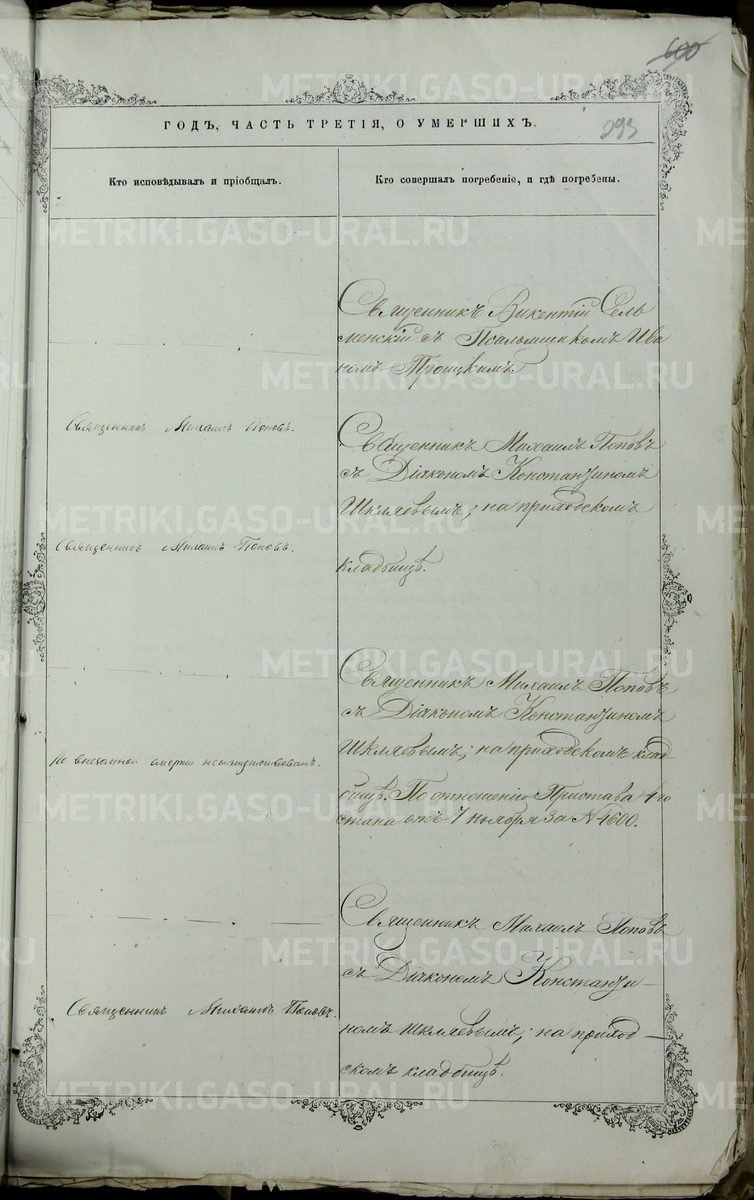 600
293
ГОДЪ, ЧАСТЬ ТРЕТІЯ, О УМЕРШИХЪ.
Кто исповѣдывалъ и пріобщалъ.
Кто совершалъ погребеніе, и гдѣ погребены.
Священникъ Викентій Сель
менскій съ Псаломщикомъ Ива
номъ Троицкимъ
Священникъ Михаилъ Поповъ.
Священникъ Михаилъ Поповъ
съ Діакономъ Константиномъ
Шкляевымъ; на приходскомъ
кладбищѣ.
Священникъ Михаилъ Поповъ.
Священникъ Михаилъ Поповъ
съ Діакономъ Константиномъ
Шкляевымъ; на приходскомъ клад
бищѣ. По отношенію Пристава 4го
стана отъ 7 ноября за N 4600.
По внезапной смерти ненапутствованъ.
Священникъ Михаилъ Поповъ
съ Діакономъ Константи-
номъ Шкляевымъ; на приход-
скомъ кладбищѣ.
Священникъ Михаилъ Поповъ.
METRIKI.GASO-URAL.RU